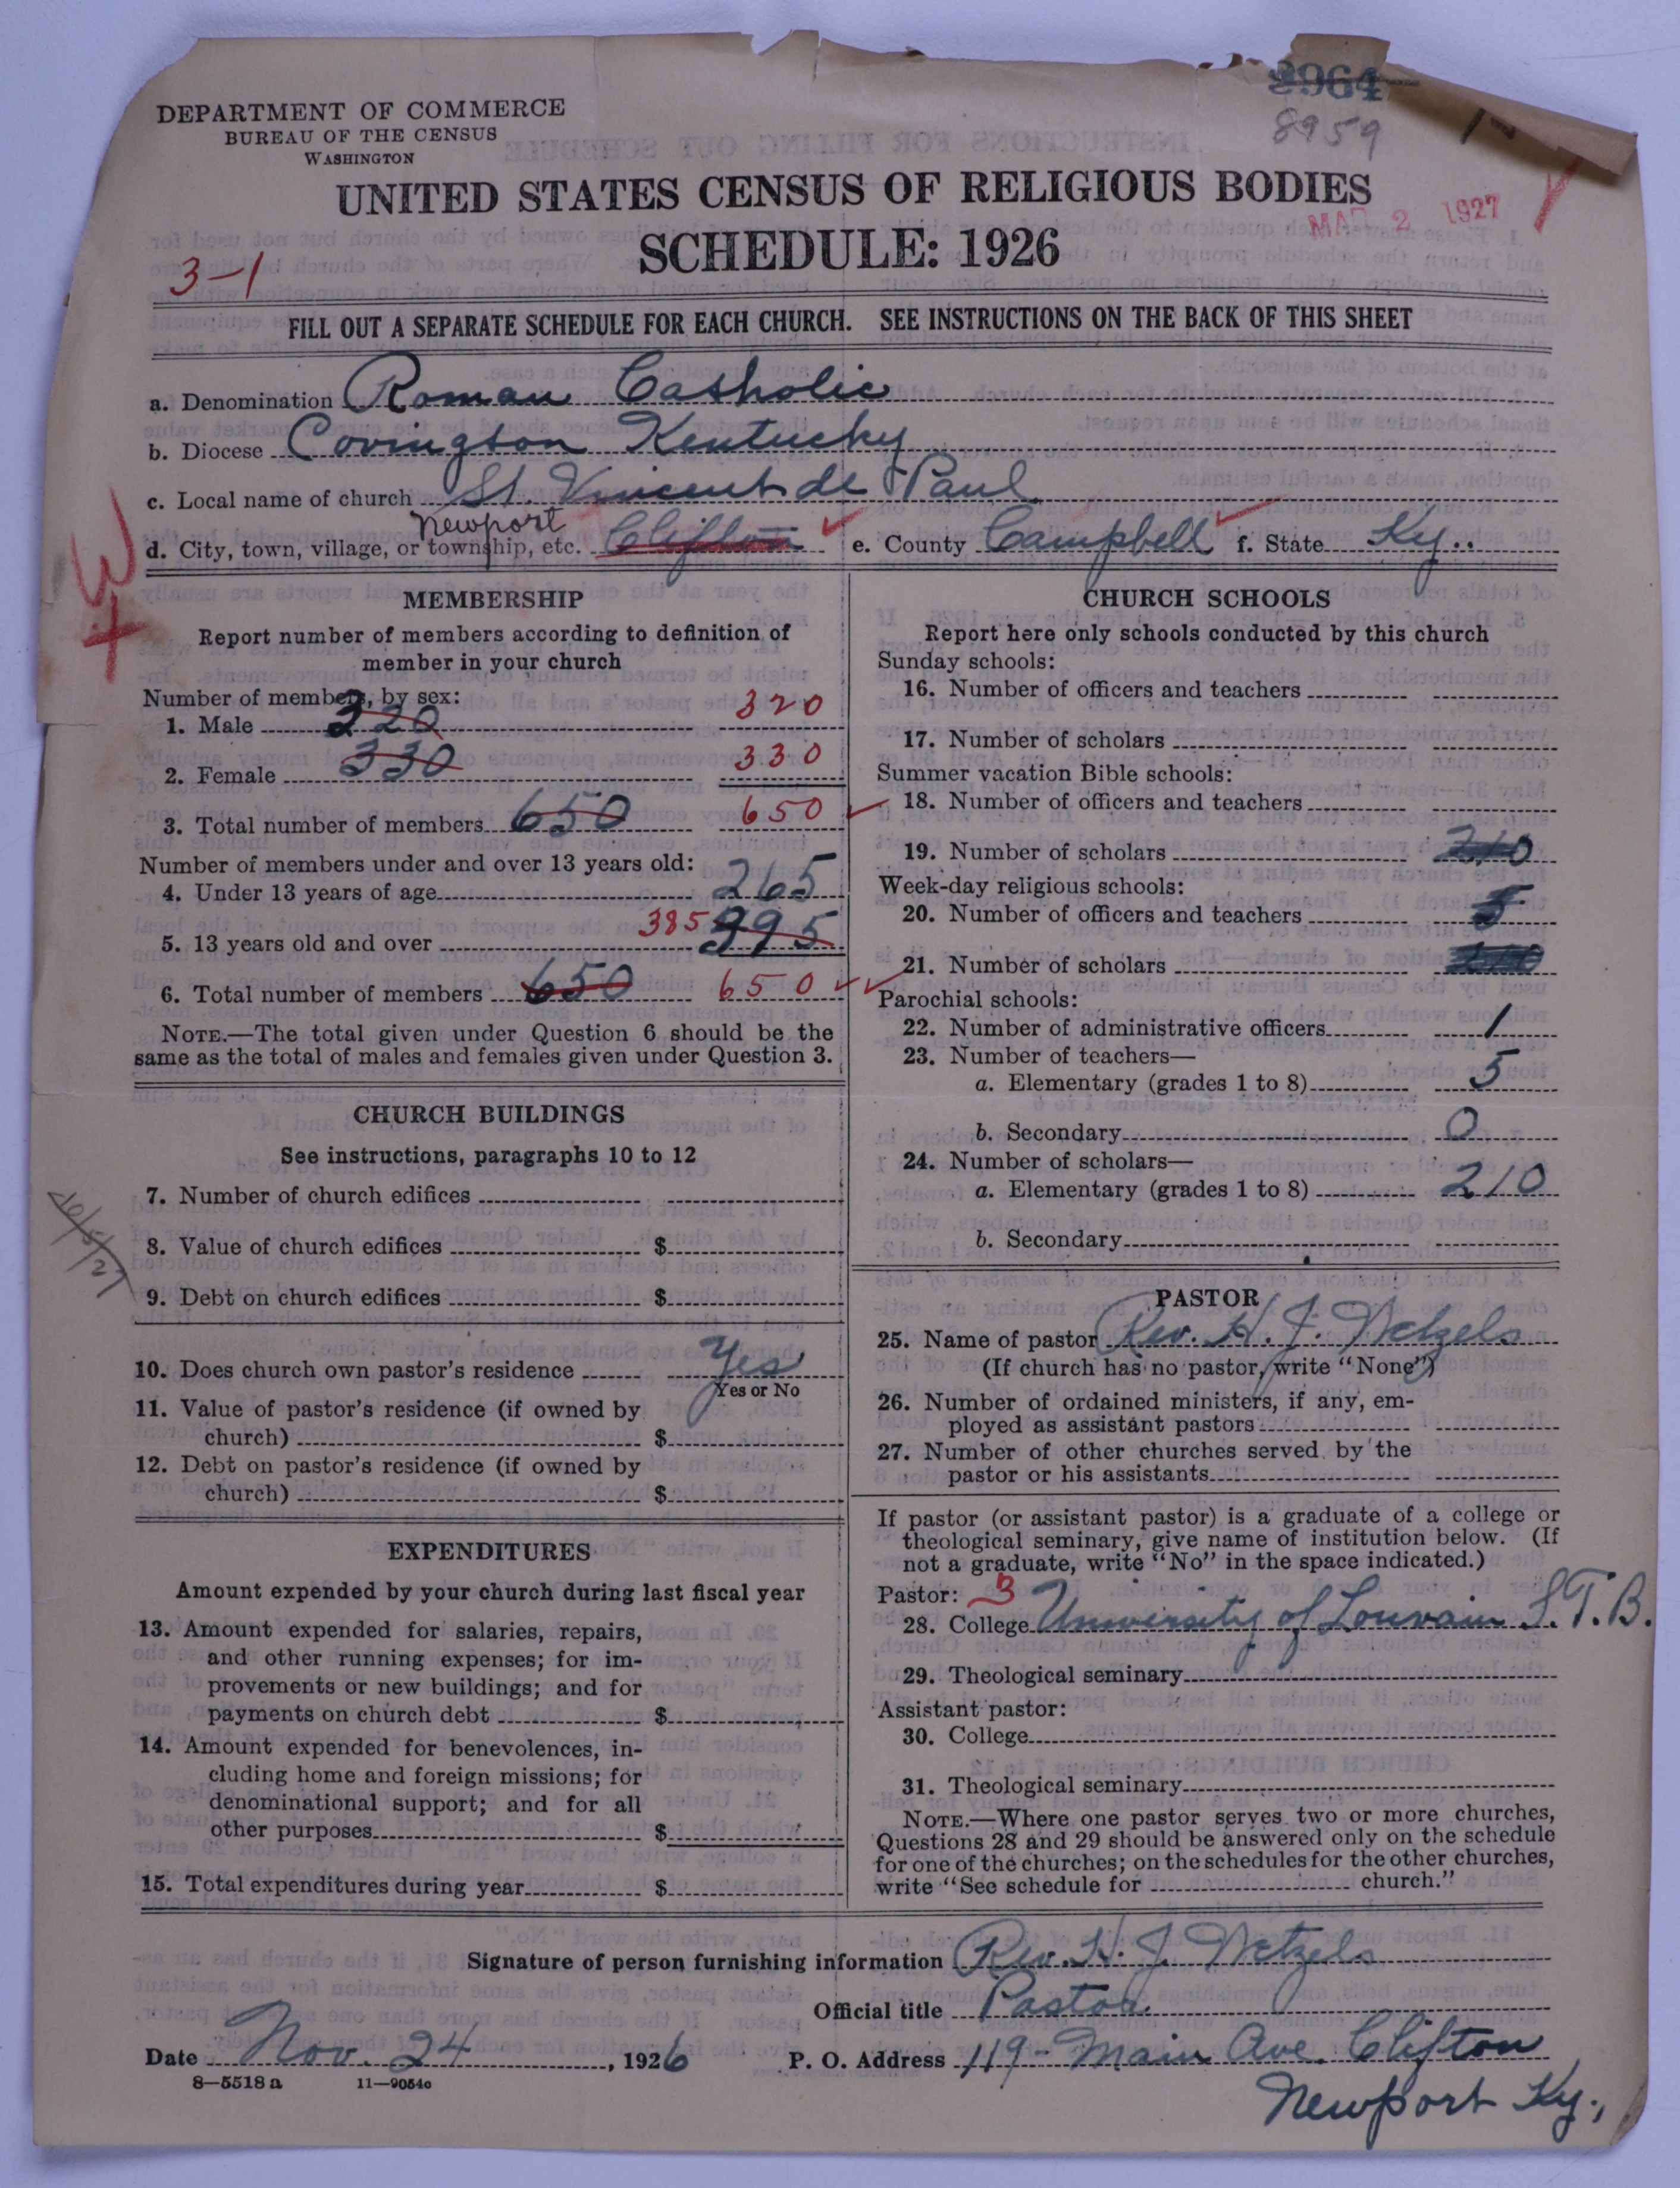 DEPARTMENT OF COMMERCE
BUREAU OF THE CENSUS
WASHINGTON
2964
8959
UNITED STATES CENSUS OF RELIGIOUS BODIES
MAR 2 1927
SCHEDULE: 1926
3-1
FILL OUT A SEPARATE SCHEDULE FOR EACH CHURCH. SEE INSTRUCTIONS ON THE BACK OF THIS SHEET
a. Denomination Roman Catholic
b. Diocese Covington Kentucky
c. Local name of church St. Vincent de Paul
Newport
d. City, town, village, or township, etc. Clifton e. County Campbell f. State Ky..
MEMBERSHIP
Report number of members according to definition of
member in your church
Number of members, by sex:
1. Male 320 320
2. Female 330 330
3. Total number of members 650 650
Number of members under and over 13 years old:
4. Under 13 years of age 265
5. 13 years old and over 385 395
6. Total number of members 650 650
NOTE.—The total given under Question 6 should be the
same as the total of males and females given under Question 3.
CHURCH BUILDINGS
See instructions, paragraphs 10 to 12
7. Number of church edifices
8. Value of church edifices $
9. Debt on church edifices $
10. Does church own pastor's residence Yes
Yes or No
11. Value of pastor's residence (if owned by
church) $
12. Debt on pastor's residence (if owned by
church) $
EXPENDITURES
Amount expended by your church during last fiscal year
13. Amount expended for salaries, repairs,
and other running expenses; for im-
provements or new buildings; and for
payments on church debt $
14. Amount expended for benevolences, in-
cluding home and foreign missions; for
denominational support; and for all
other purposes $
15. Total expenditures during year $
CHURCH SCHOOLS
Report here only schools conducted by this church
Sunday schools:
16. Number of officers and teachers
17. Number of scholars
Summer vacation Bible schools:
18. Number of officers and teachers
19. Number of scholars 210
Week-day religious schools:
20. Number of officers and teachers 5
21. Number of scholars
Parochial schools:
22. Number of administrative officers 1
23. Number of teachers—
a. Elementary (grades 1 to 8) 5
b. Secondary 0
24. Number of scholars—
a. Elementary (grades 1 to 8) 210
b. Secondary
PASTOR
25. Name of pastor Rev. H. J. Wetzels
(If church has no pastor, write "None")
26. Number of ordained ministers, if any, em-
ployed as assistant pastors
27. Number of other churches served by the
pastor or his assistants
If pastor (or assistant pastor) is a graduate of a college or
theological seminary, give name of institution below. (If
not a graduate, write "No" in the space indicated.)
Pastor: 3
28. College University of Louvain S.T.B.
29. Theological seminary
Assistant pastor:
30. College
31. Theological seminary
NOTE.—Where one pastor serves two or more churches,
Questions 28 and 29 should be answered only on the schedule
for one of the churches; on the schedules for the other churches,
write "See schedule for church."
Signature of person furnishing information Rev. H. J. Wetzels
Official title Pastor
Date Nov. 24, 1926 P. O. Address 119- Main Ave. Clifton
8—5518a 11—9054c
Newport Ky.,